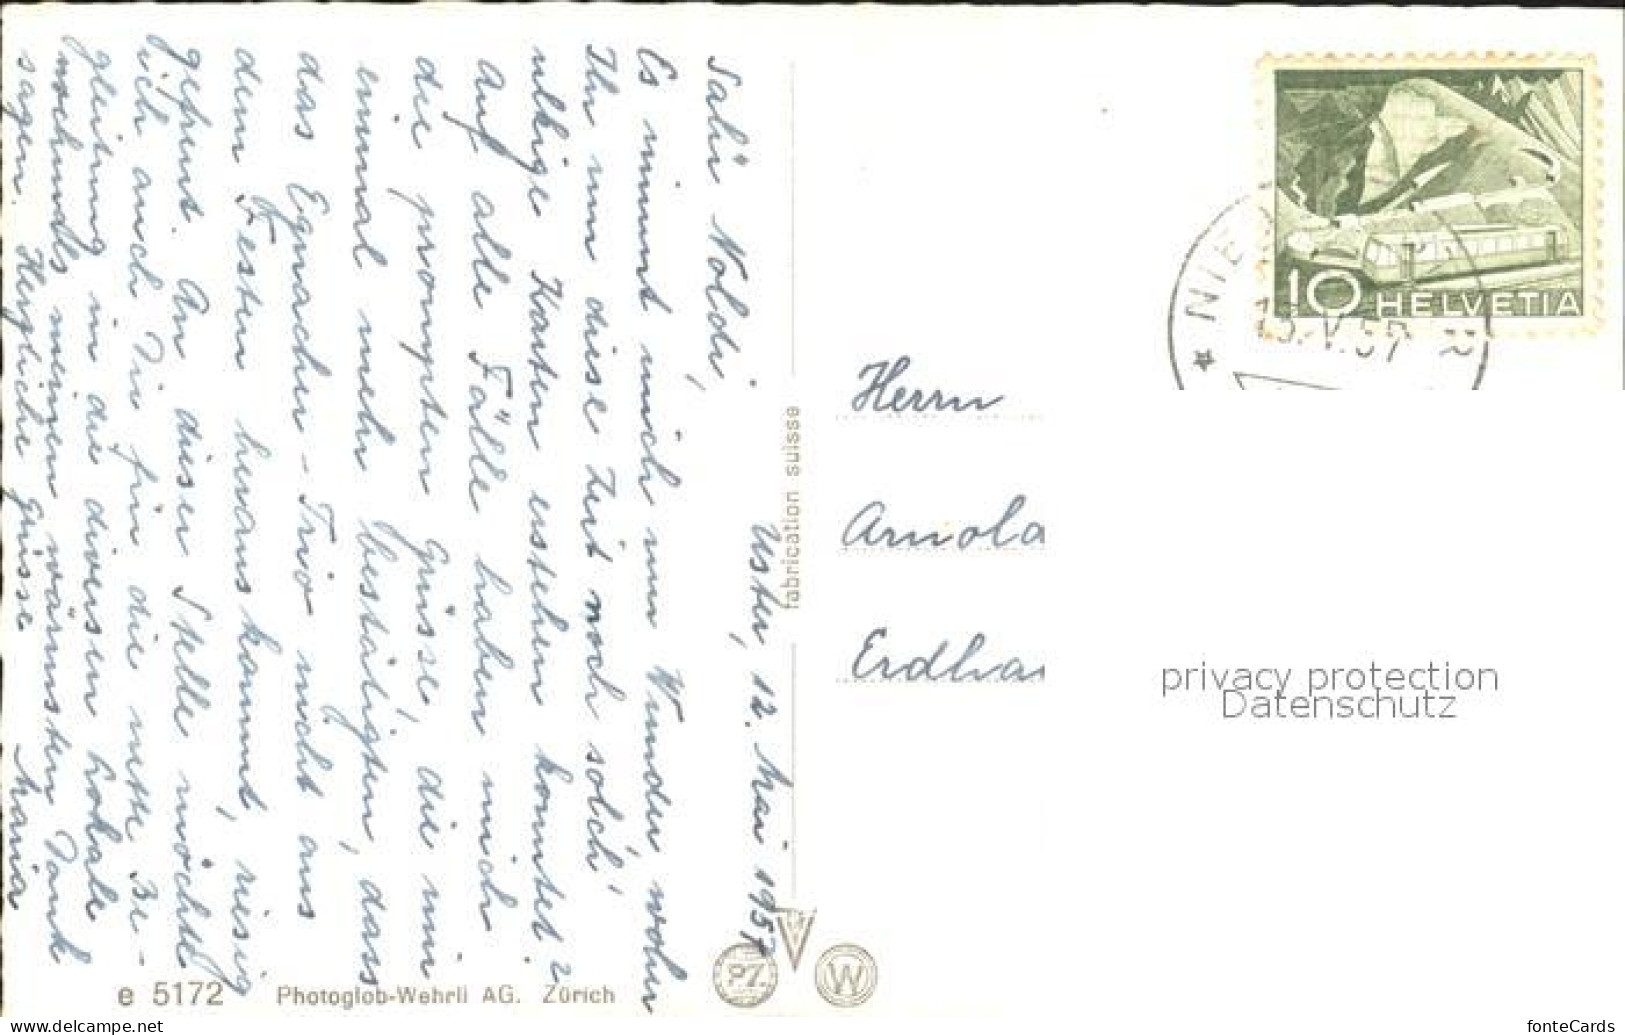 Uster, 12. Mai 1957
Salü Noldi,
Es nimmt mich nun Wunder, woher
Ihr nun diese Zeit noch solch'
ulkige Karten erstehen konntet?
Auf alle Fälle haben mich
die prompten Grüsse, die mir
einmal mehr bestätigten, dass
das Egnacher-Trio nicht aus
dem Festen herauskommt, riesig
gefreut. An dieser Stelle möchte
ich auch Dir für die nette Be-
gleitung in die diversen Lokale
nochmals meinen wärmsten Dank
sagen. Herzliche Grüsse Maria
fabrication suisse
e 5172 Photoglob-Wehrli AG. Zürich
PZ. W
10 HELVETIA
NIE R
13.V.57
Herrn
Arnold
Erdha
privacy protection
Datenschutz
www.delcampe.net
fonteCards